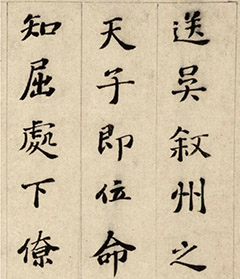 送吳叙州之
天子即位命
知屈處下僚